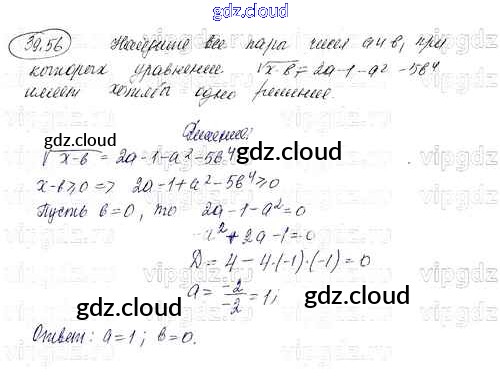 gdz.cloud
39.56 Найдите все пары чисел a и b, при
которых уравнение √x-b = 2a-1-a²-5b⁴
имеет хотя бы одно решение.
gdz.cloud
Решение:
√x-b = 2a-1-a²-5b⁴
gdz.cloud
x-b≥0 => 2a-1+a²-5b⁴≥0
Пусть b=0, то 2a-1-a²=0
-a²+2a-1=0
D=4-4·(-1)·(-1)=0
a=-2/-2=1;
gdz.cloud
gdz.cloud
Ответ: a=1; b=0.
gdz.cloud